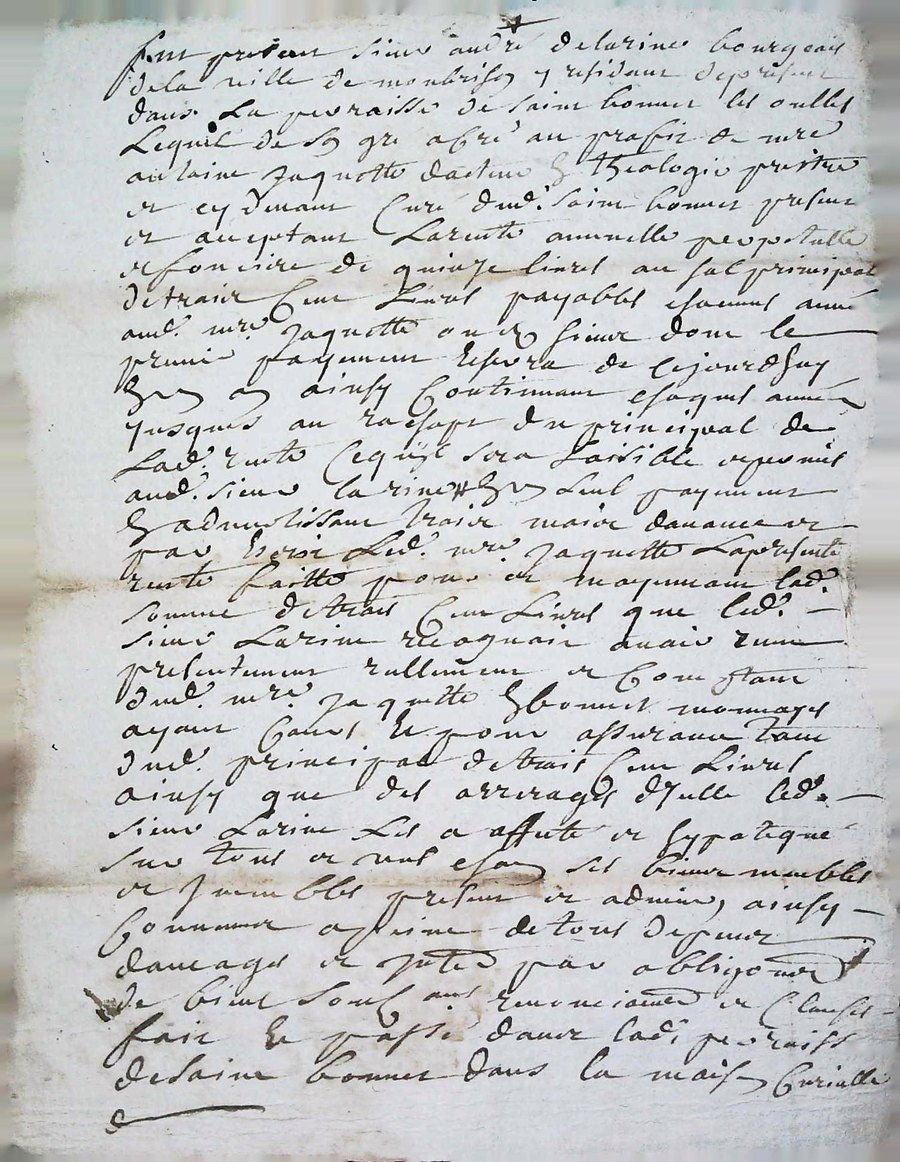 fut present sieur andré delarine bourgeois
de la ville de monbrison y residant depresent
dans La parroisse de saint bonnet les oulles
Lequel de son gré a créé au proffit de mre
anthoine Jaquette docteur en theologie prestre
et cy devant Curé dud. saint bonnet present
et acceptant La rente annuelle perpetuelle
et fonciere de quinze livres au sol principal
de trois Cent Livres payables chacunes année
aud. mre Jaquette ou es siens dont le
premier payement eschera de cejourdhuy
en un an ainsy Continuant chaques années
jusques au rachapt du principal de
Lad. rente Ce quil sera Loisible et permis
aud. sieur larine # en un seul payement
en advertissant trois mois davance et
par escrit Led. mre Jaquette La presente
rente faitte pour et moyenant lad.
somme de trois Cent Livres que led.
sieur Larine recognoit avoir receu
presentement reellement et Comptant
dud. mre Jaquette en bonnes monnoyes
ayant Cours Et pour assurance tant
dud. principal de trois Cent Livres
ainsy que des arrerages dycelle led.
sieur Larine Les a affecté et hypotequé
sur tous et uns chacun ses biens meubles
et Jmeubles present et advenir, ainsy
Convenu a peine de tous despens
domages et jnterest par obligations
de biens soub. renonciations et Clauses
fait Et passé dans lad. parroisse
de saint bonnet dans la maison Curialle